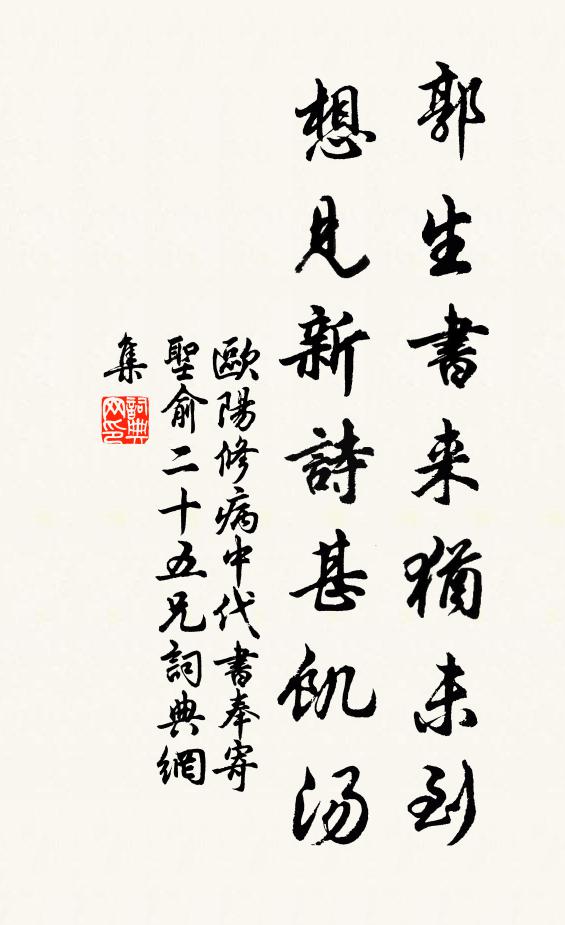 郭生書来猶未到
想見新詩甚飢渴
歐陽修病中代書奉寄
聖俞二十五兄詞典網
集
詞典
网印